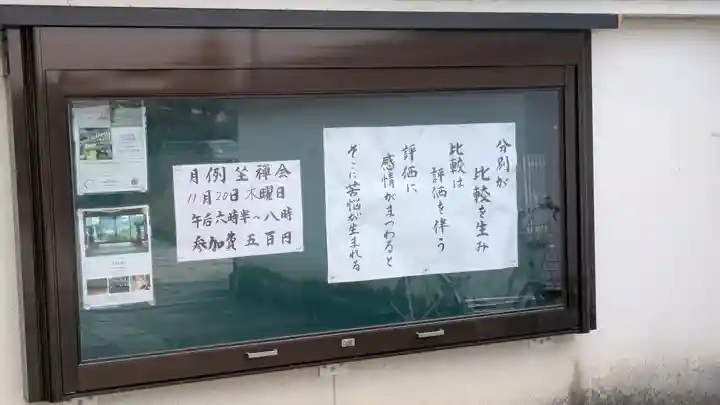 分別が
比較を生み
比較は
評価を伴う
評価に
感情がまつわると
そこに苦悩が生まれる
月例坐禅会
11月20日木曜日
午后六時半～八時
参加費五百円